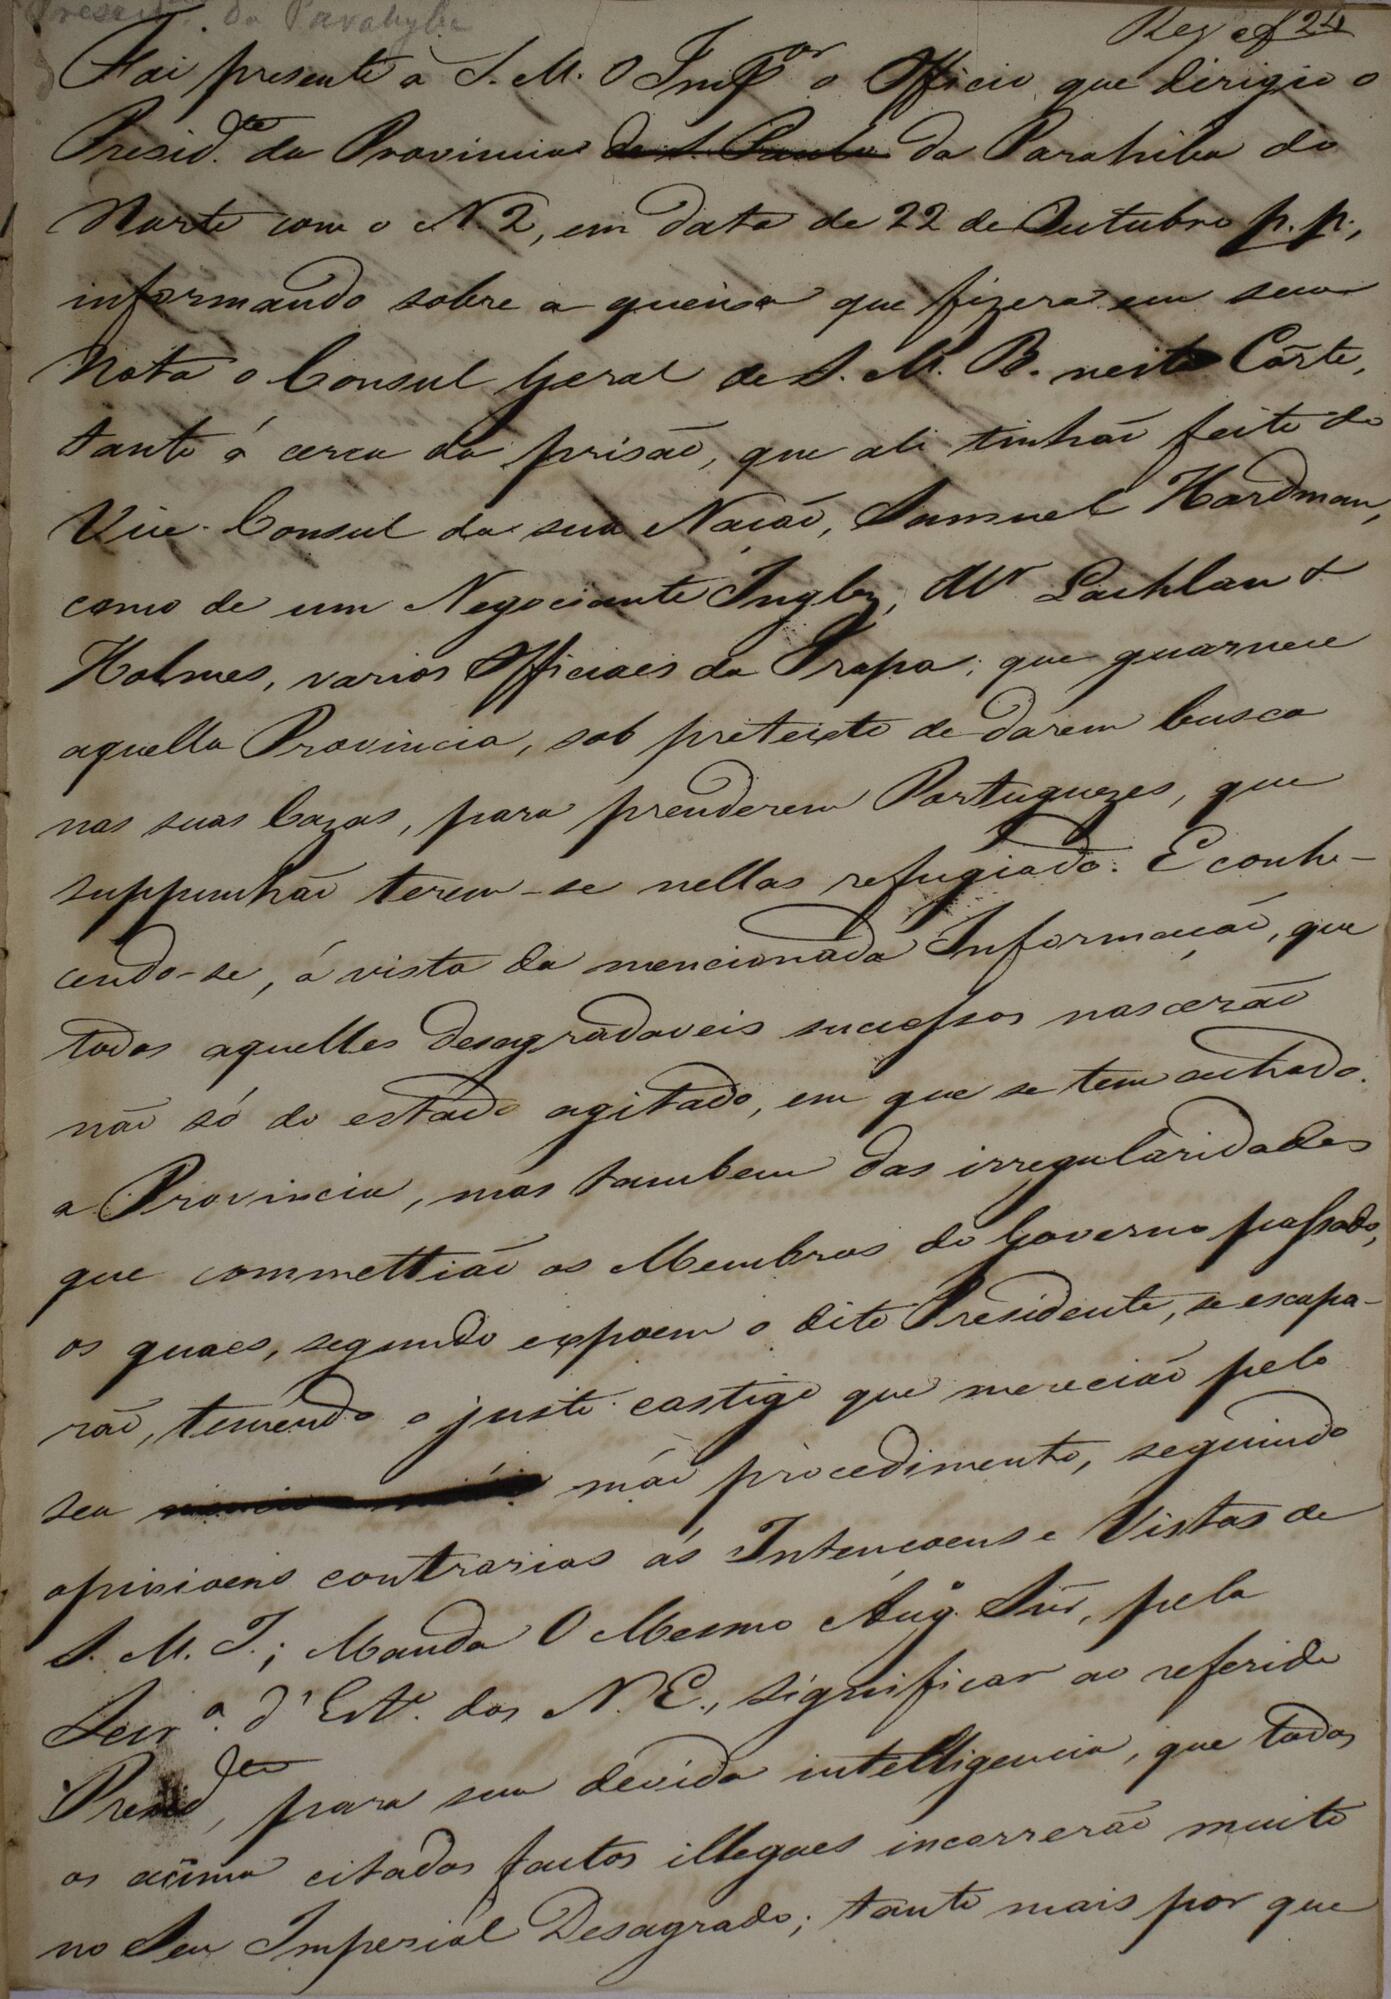 Presid.te da Parahyba
Reg. a f 24
Foi presente a S. M. O Imp.or o Officio que dirigio o
Presid.te da Provincia de S. Paulo da Parahiba do
Norte com o N. 2, em data de 22 de Outubro p. p.,
informando sobre a queixa que fizera em sua
Nota o Consul Geral de S. M. B. nesta Côrte,
tanto á cerca da prisão, que ali tinhão feito do
Vice-Consul da sua Nação, Samuel Hardman,
como de um Negociante Inglez, W.r Lachlan &
Holmes, varios Officiaes da Tropa, que guarnece
aquella Provincia, sob pretexto de darem busca
nas suas Cazas, para prenderem Portuguezes, que
suppunhão terem-se nellas refugiado. E conhe-
cendo-se, á vista da mencionada Informação, que
todos aquelles desagradaveis successos nascerão
não só do estado agitado, em que se tem achado
a Provincia, mas tambem das irregularidades
que commettião os Membros do Governo passado,
os quaes, segundo expoem o dito Presidente, se escapa-
rão, temendo o justo castigo que merecião pelo
seu máo procedimento, seguindo
opinioens contrarias ás Intençoens e Vistas de
S. M. I.; Manda O Mesmo Aug. Snr., pela
Secr.a d'Est.o dos N. E., significar ao referido
Presid.te, para sua devida intelligencia, que todos
os acima citados factos illegaes incorrerão muito
no Seu Imperial Desagrado; tanto mais por que